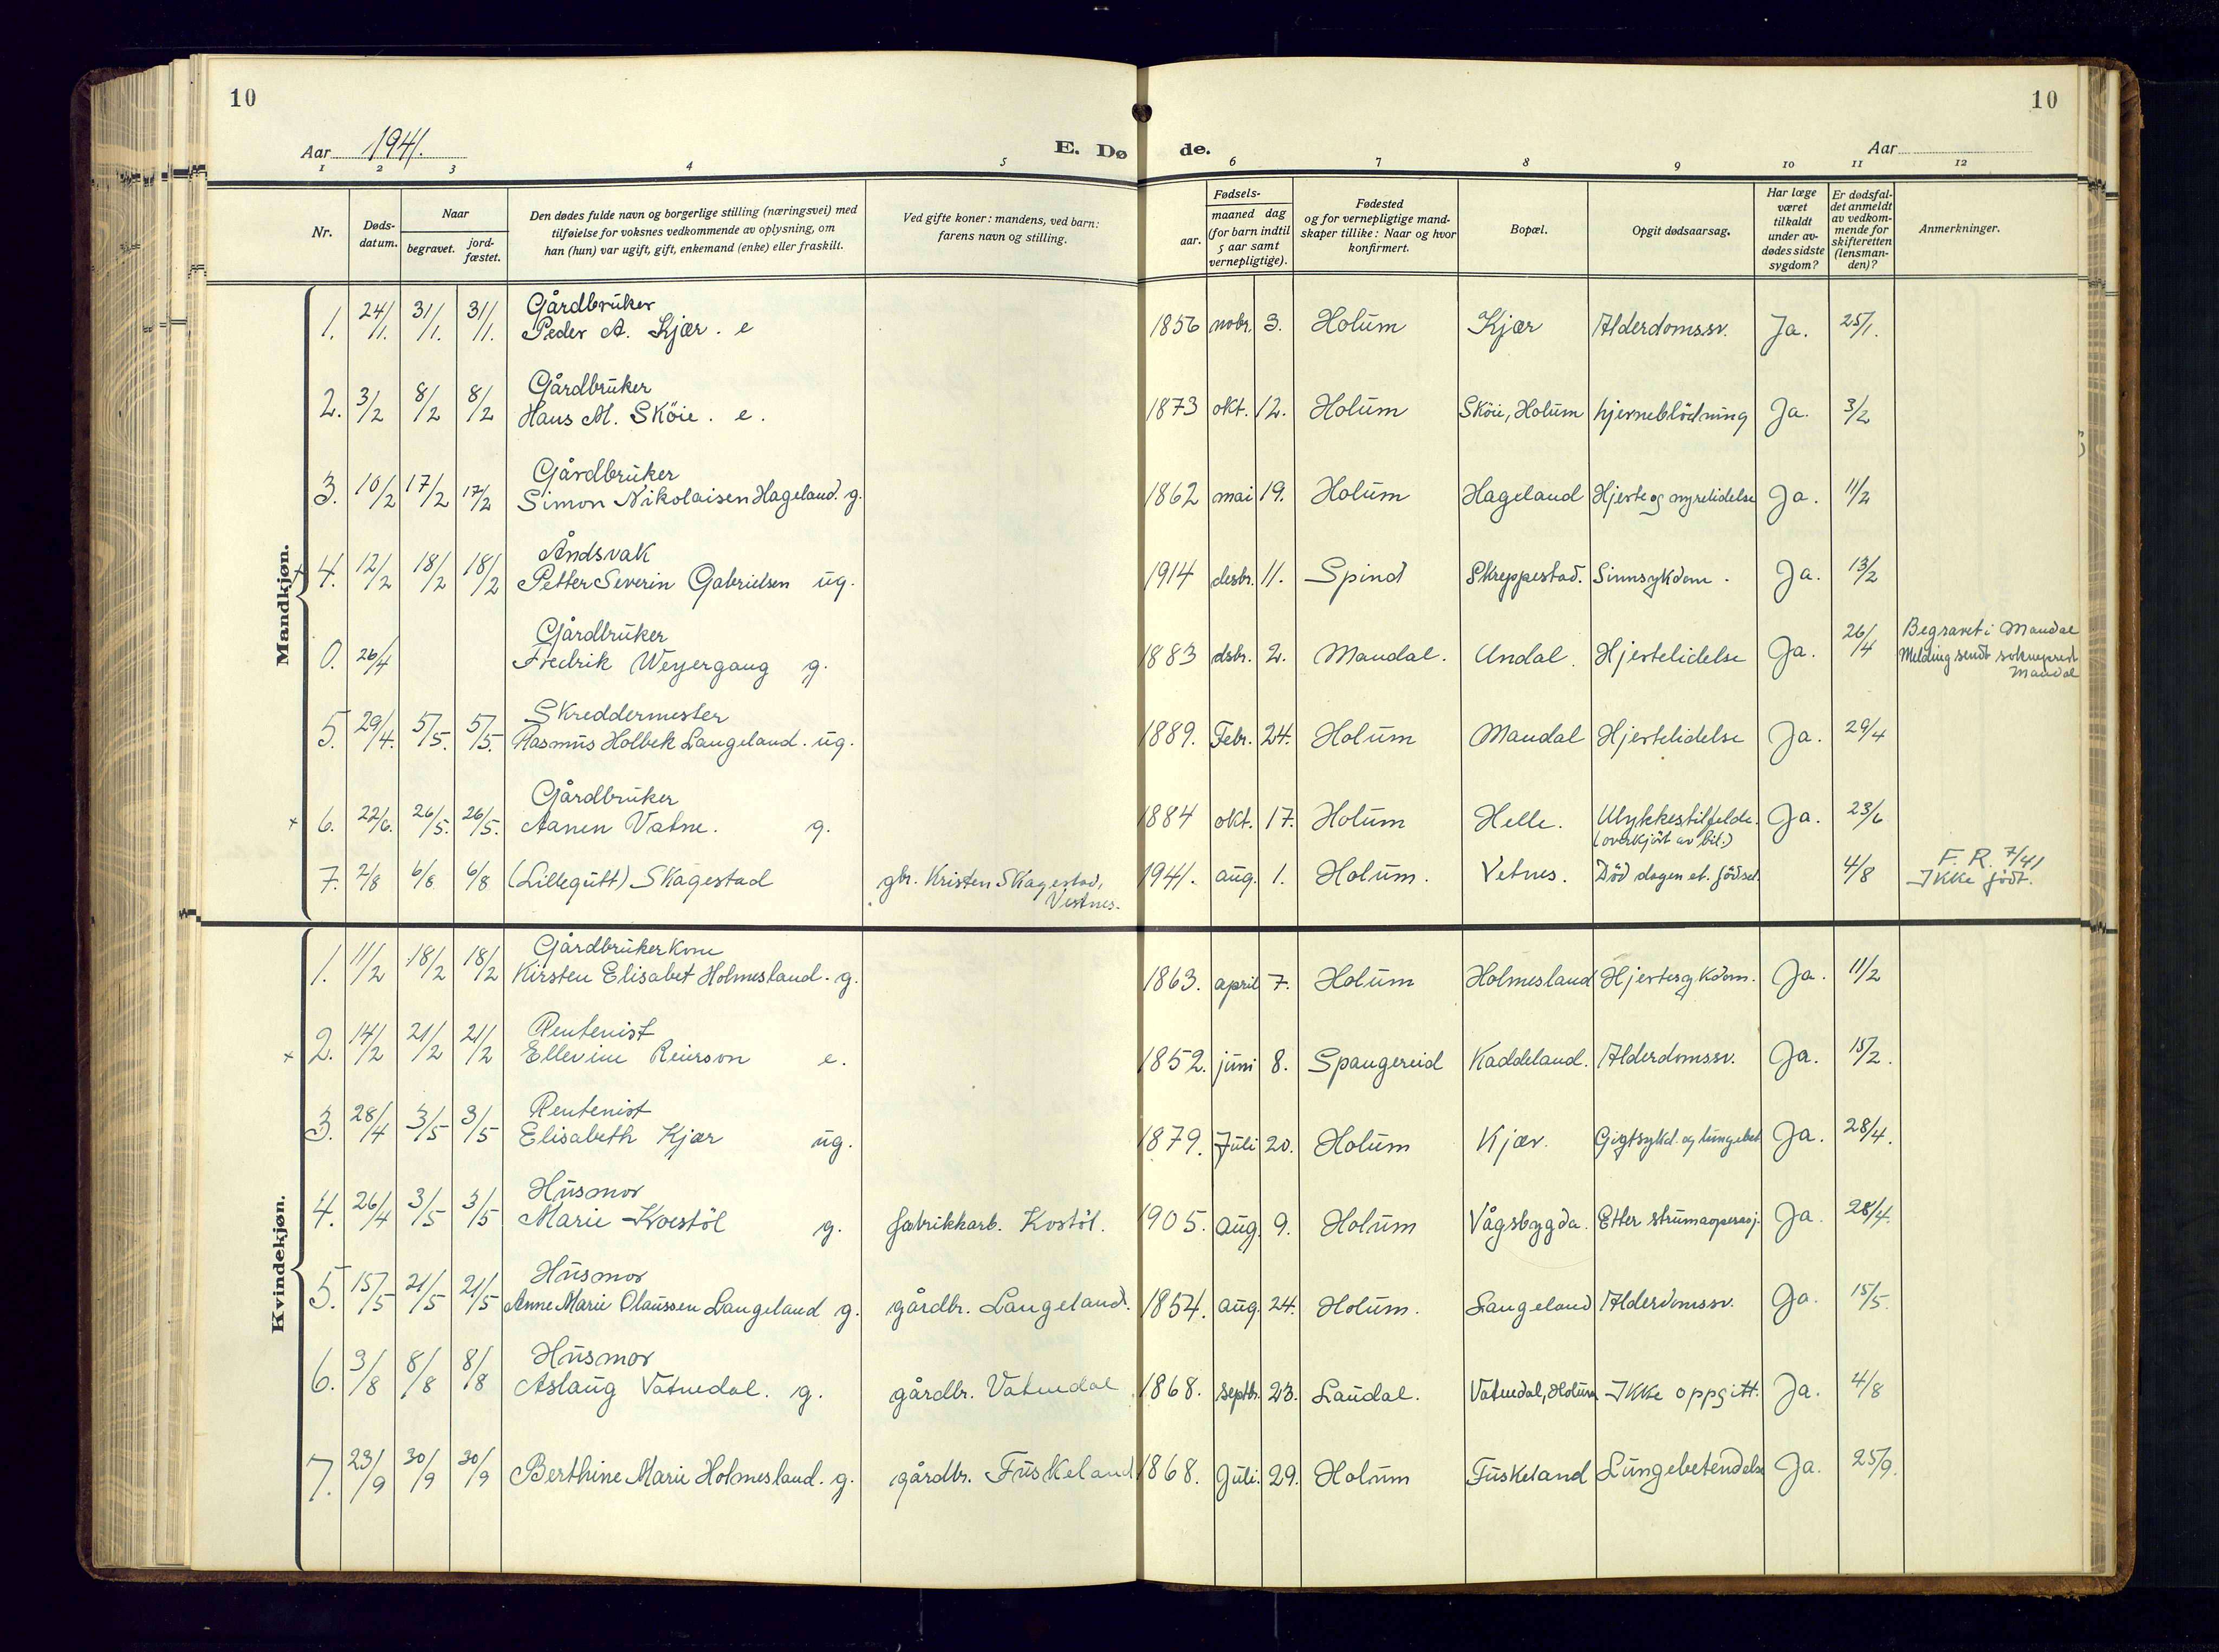 10
10
Aar 1941.
E. Dø
de.
Aar
1 2 3 4 5 6 7 8 9 10 11 12
Nr.
Døds-
datum.
Naar
begravet.
jord-
fæstet.
Den dødes fulde navn og borgerlige stilling (næringsvei) med
tilføielse for voksnes vedkommende av oplysning, om
han (hun) var ugift, gift, enkemand (enke) eller fraskilt.
Ved gifte koner: mandens, ved barn:
farens navn og stilling.
Fødsels-
aar.
maaned dag
(for barn indtil
5 aar samt
vernepligtige).
Fødested
og for vernepligtige mand-
skaper tillike: Naar og hvor
konfirmert.
Bopæl.
Opgit dødsaarsag.
Har læge
været
tilkaldt
under av-
dødes sidste
sygdom?
Er dødsfal-
det anmeldt
av vedkom-
mende for
skifteretten
(lensman-
den)?
Anmerkninger.
Mandkjøn.
Gårdbrüker
1. 24/1. 31/1. 31/1. Peder A. Kjær. e 1856 nobr. 3. Holüm Kjær Alderdomssv. Ja. 25/1.
Gårdbrüker
2. 3/2 8/2 8/2 Hans M. Sköie. e. 1873 okt. 12. Holüm Sköie, Holüm hjerneblödning Ja. 3/2
Gårdbrüker
3. 10/2 17/2 17/2 Simon Nikolaisen Hageland. g. 1862 mai 19. Holüm Hageland Hjerte og nyrelidelse Ja. 11/2
Åndsvak
+ 4. 12/2 18/2 18/2 Petter Severin Gabrielsen üg. 1914 desbr. 11. Spind Skreppestad. Sinnsykdom. Ja. 13/2
Gårdbrüker
0. 26/4 Fredrik Weyergang g. 1883 dsbr. 2. Mandal. Undal. Hjertelidelse Ja. 26/4 Begravet i Mandal
Melding sendt sokneprest
Mandal
Skreddermester
5. 29/4. 5/5. 5/5. Rasmüs Holbek Langeland. üg. 1889. Febr. 24. Holüm Mandal Hjertelidelse Ja. 29/4
Gårdbrüker
+ 6. 22/6. 26/5. 26/5. Aanen Vatne. g. 1884 okt. 17. Holüm Helle. Ulykkestilfelde. Ja. 23/6
(overkjört av bil.)
7. 2/8 6/8 6/8 (Lillegütt) Skagestad gbr. Kristen Skagestad, 1941. aüg. 1. Holüm. Vetnes. Död dagen et. födsel. 4/8 F. R. 7/41
Vestnes. Ikke födt.
Kvindekjøn.
Gårdbrüker kone
1. 11/2 18/2 18/2 Kirsten Elisabet Holmesland. g. 1863. april 7. Holüm Holmesland Hjertesykdom. Ja. 11/2
Rentenist
+ 2. 14/2 21/2 21/2 Ellevine Reierson e. 1852. jüni 8. Spangereid Kaddeland. Alderdomssv. Ja. 15/2.
Rentenist
3. 28/4 3/5 3/5 Elisabeth Kjær üg. 1879. Jüli 20. Holüm Kjær. Gigtsykd. og lüngebet Ja. 28/4.
Hüsmor
4. 26/4 3/5 3/5 Marie Kvestöl g. fabrikkarb. Kvstöl. 1905. aüg. 9. Holüm Vågsbygda. Etter strümaoperasj. Ja. 28/4.
Hüsmor
5. 15/5 21/5 21/5 Anne Marie Olaüssen Langeland g. gårdbr. Langeland. 1854. aüg. 24. Holüm. Langeland Alderdomssv. Ja. 15/5.
Hüsmor
6. 3/8 8/8 8/8 Aslaüg Vatnedal. g. gårdbr. Vatnedal 1868. septbr. 23. Laüdal. Vatnedal, Holüm Ikke oppgitt. Ja. 4/8
7. 23/9 30/9 30/9 Berthine Marie Holmesland. g. gårdbr. Füskeland 1868. Jüli. 29. Holüm Füskeland Lüngebetendelse Ja. 25/9.